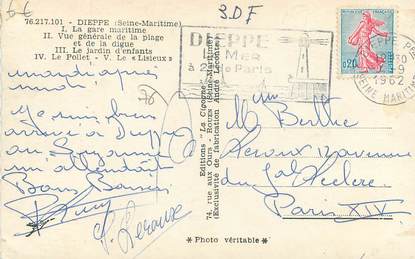 6€
3DF
76.217.101 - DIEPPE (Seine-Maritime)
I. La gare maritime
II. Vue générale de la plage
et de la digue
III. Le jardin d'enfants
IV. Le Pollet - V. Le « Lisieux »
DIEPPE
MER
à 2 de Paris
0,20
1962
SEINE MARITIME
mardi après
midi
76
Je suis bien
arrivée à Dieppe
m'attendait
Bons Baisers
P. Leroux
Editions "La Cigogne"
74, rue aux Ours - ROUEN (Seine-Maritime)
de fabrication André Leconte
M Berthe
Leroux 12 avenue
du Gal Leclerc
Paris XIV
* Photo véritable *